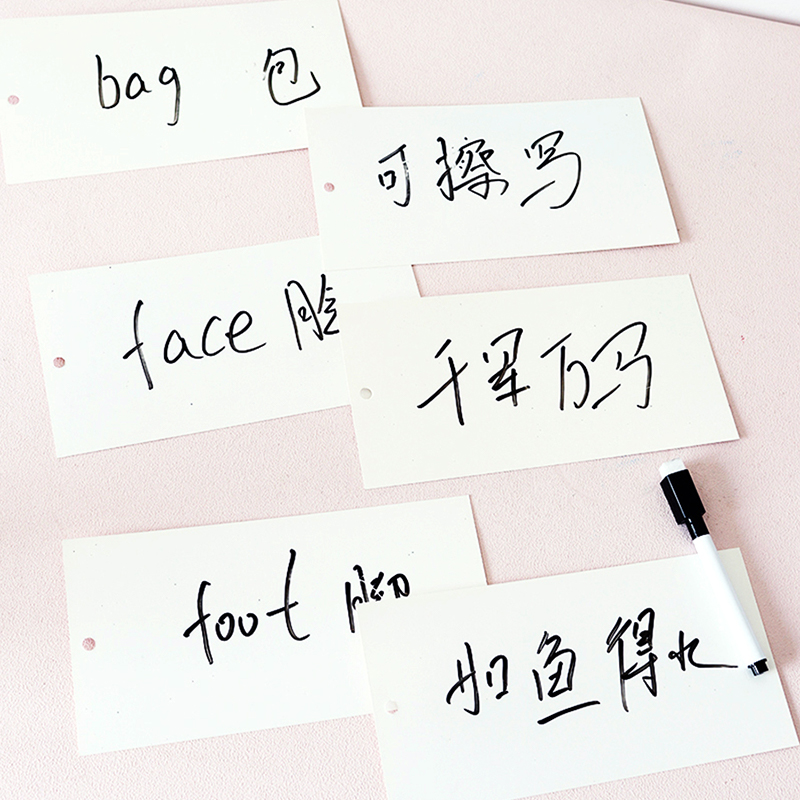 bag 包
可擦写
face 脸
千军万马
foot 脚
如鱼得水